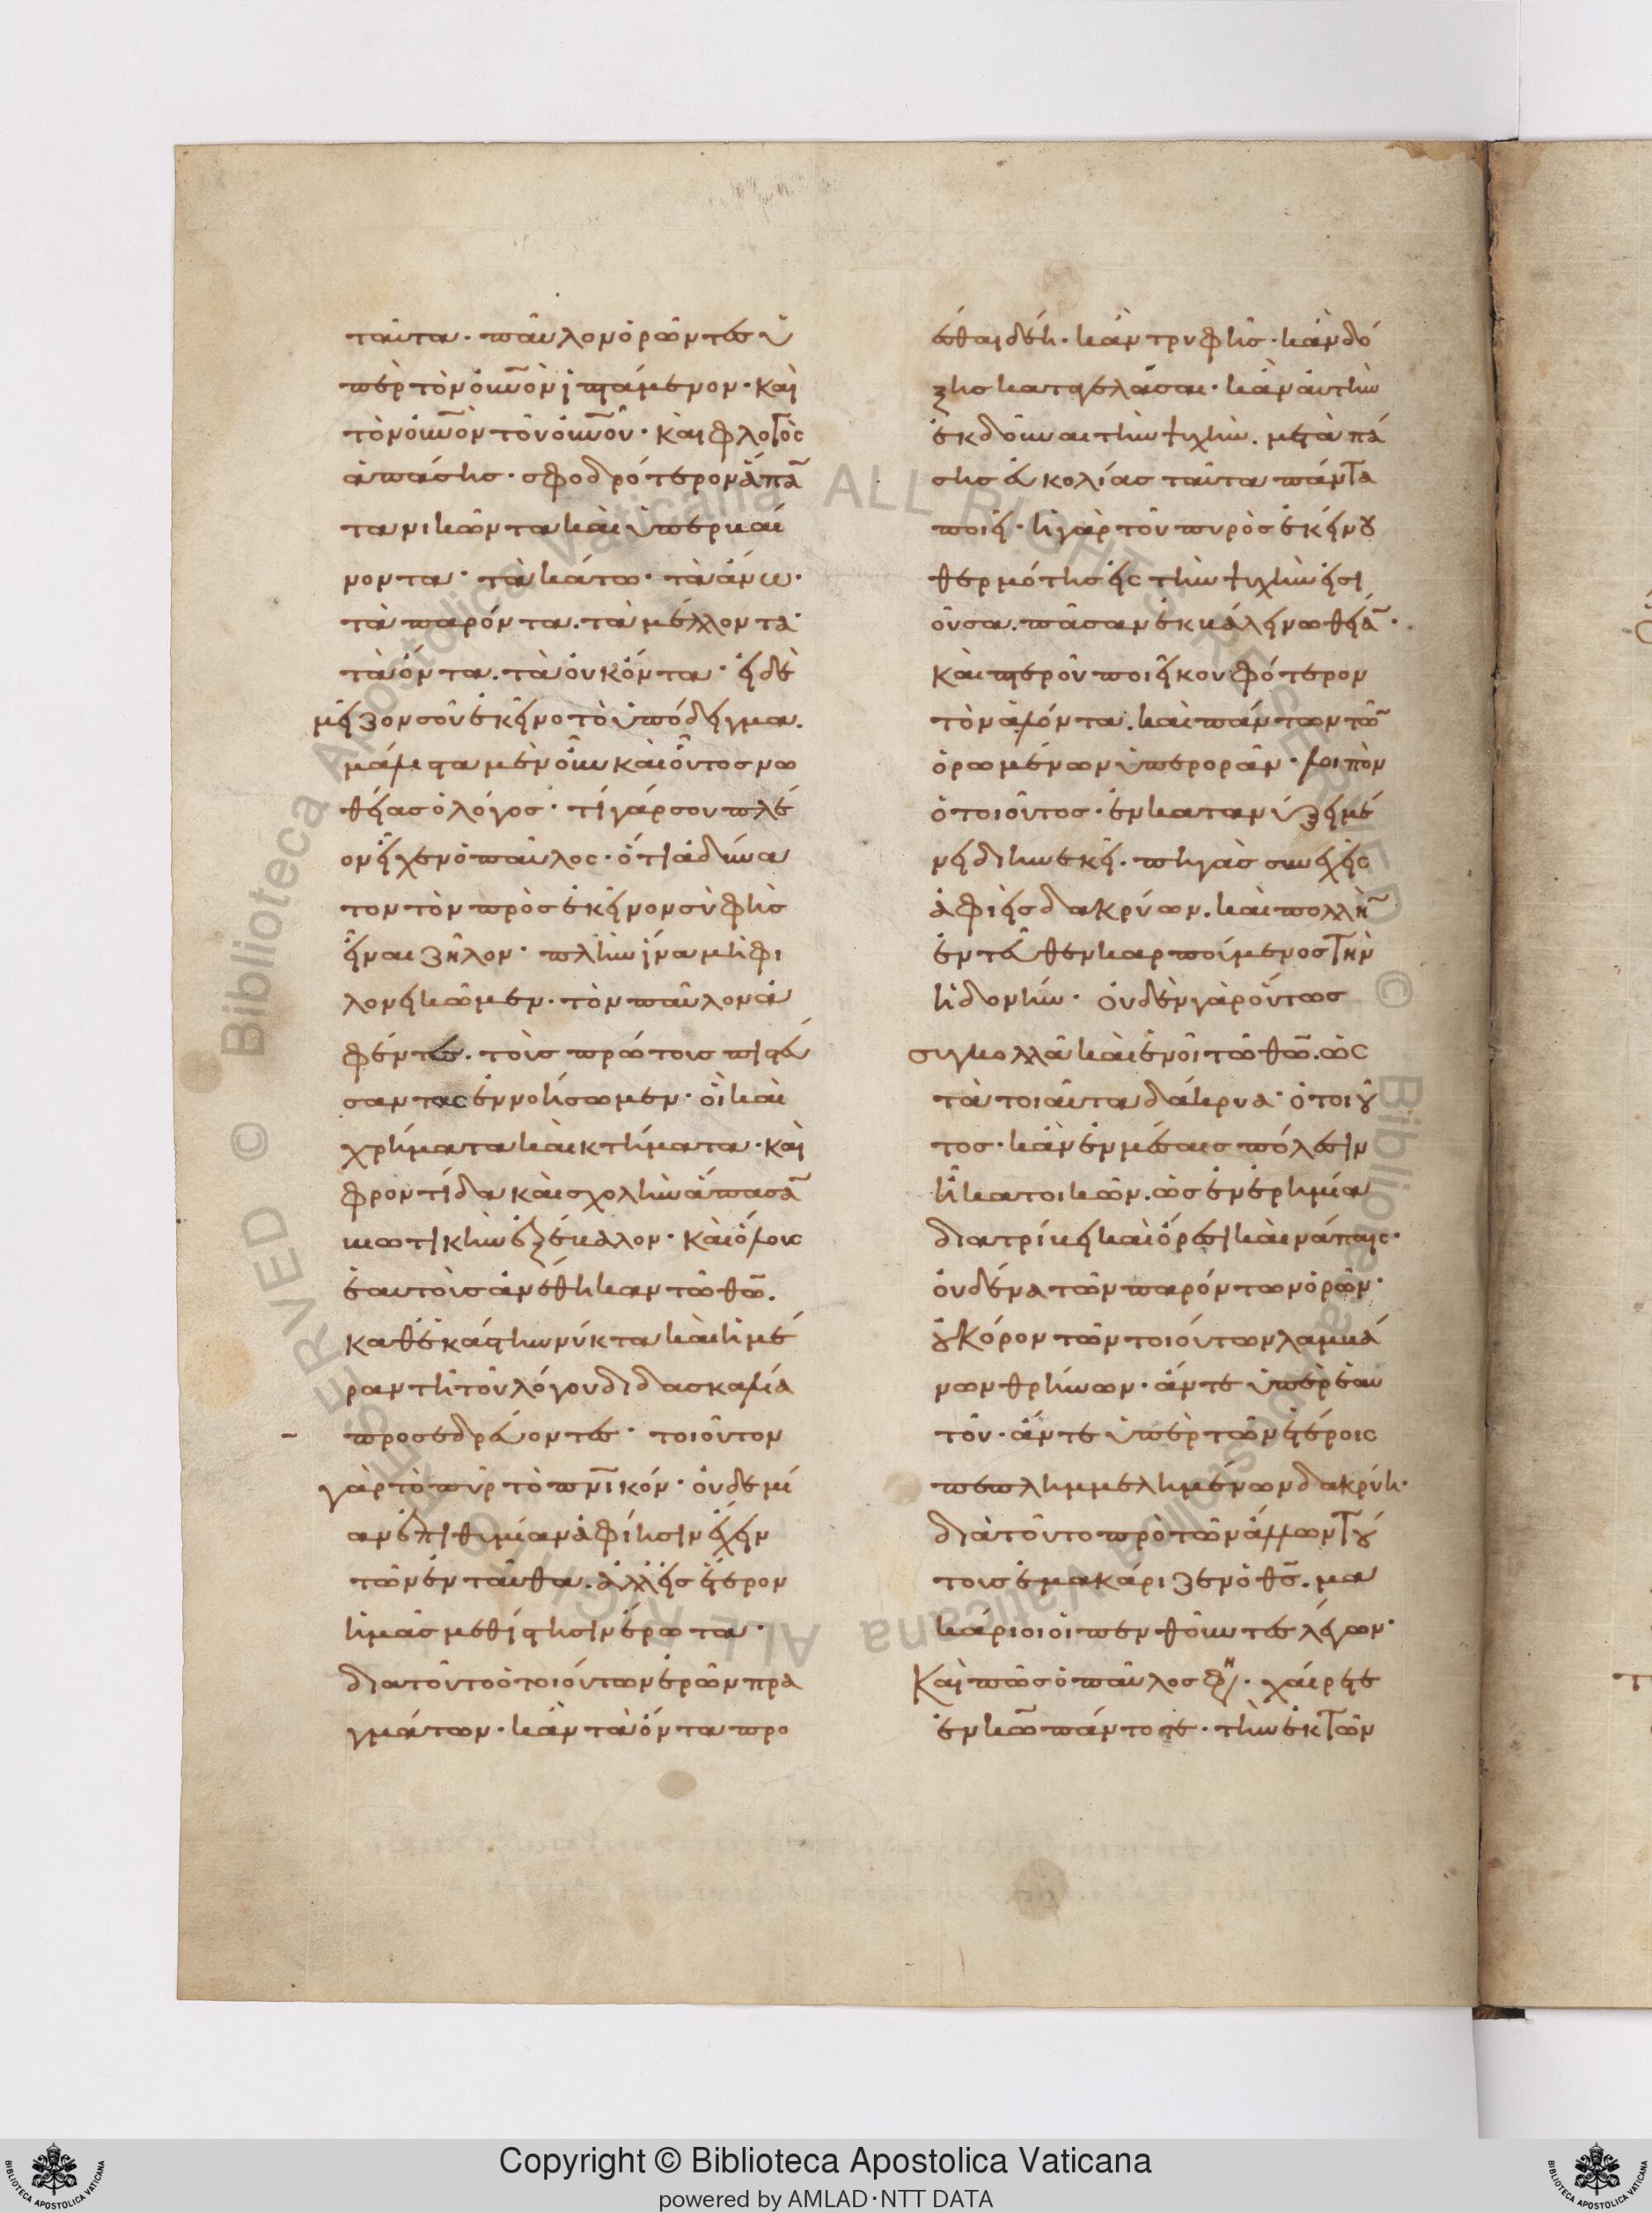 ταῦτα· παῦλον ὁρῶντες ὑ
πὲρ τὸν οὐνὸν ἱπτάμενον· καὶ
τὸν οὐνὸν τοῦ οὐνοῦ· καὶ φλογὸς
ἁπάσης· σφοδρότερον ἅπαν
τα νικῶντα καὶ ὑπερβαί
νοντα· τὰ κάτω· τὰ ἄνω·
τὰ παρόντα. τὰ μέλλοντα·
τὰ ὄντα. τὰ οὐκ ὄντα· εἰ δὲ
μεῖζον σοῦ ἐκεῖνο τὸ ὑπόδειγμα.
μάλιστα μὲν οὖν καὶ οὗτος νω
θείας ὁ λόγος· τί γάρ σου πλέ
ον εἶχεν ὁ παῦλος· ὅτι ἀδύνα
τον τὸν πρὸς ἐκεῖνον σὺ φὴς
εἶναι ζῆλον· πλὴν ἵνα μὴ φι
λονεικῶμεν· τὸν παῦλον ἀ
φέντες. τοὺς πρώτους πιστεύ
σαντας ἐννοήσωμεν· οἳ καὶ
χρήματα καὶ κτήματα· καὶ
φροντίδα καὶ σχολὴν ἅπασαν
βιωτικὴν ἐξέβαλον· καὶ ὅλους
ἑαυτοὺς ἀνέθηκαν τῶ θῶ.
καθ ἑκάστην νύκτα καὶ ἡμέ
ραν τῆ τοῦ λόγου διδασκαλία
προσεδρεύοντες· τοιοῦτον
γὰρ τὸ πῦρ τὸ πνικόν· οὐδεμί
αν ἐπιθυμίαν ἀφίησιν ἔχειν
τῶν ἐνταῦθα. ἀλλ εἰς ἕτερον
ἡμᾶς μεθίστησιν ἔρωτα·
διατοῦτο ὁ τοιούτων ἐρῶν πρα
γμάτων· κἂν τὰ ὄντα προ
έσθαι δέη· κἂν τρυφῆς· κἂν δό
ξης καταγελάσαι· κἂν αὐτὴν
ἐκδοῦναι τὴν ψυχὴν. μετὰ πά
σης εὐκολίας ταῦτα πάντα
ποιεῖ· ἡ γὰρ τοῦ πυρὸς ἐκείνου
θερμότης εἰς τὴν ψυχὴν εἰσι
οῦσα. πᾶσαν ἐκβάλει νωθείαν·
καὶ πτεροῦ ποιεῖ κουφότερον
τὸν ἁλόντα. καὶ πάντων τῶν
ὁρωμένων ὑπερορᾶν· λοιπὸν
ὁ τοιοῦτος· ἐν κατανύξει μέ
νει διηνεκεῖ. πηγὰς συνεχεῖς
ἀφιεὶς δακρύων. καὶ πολλὴν
ἐντεῦθεν καρπούμενος τὴν
ἡδονήν· οὐδὲν γὰρ οὕτως
συγκολλᾶ καὶ ἑνοῖ τῶ θῶ. ὡς
τὰ τοιαῦτα δάκρυα· ὁ τοιοῦ
τος· κἂν ἐν μέσαις πόλεσιν
ἦ κατοικῶν. ὡς ἐν ἐρημία
διατρίβει καὶ ὄρεσι καὶ νάπαις·
οὐδένα τῶν παρόντων ὁρῶν·
οὐ κόρον τῶν τοιούτων λαμβά
νων θρήνων· ἄν τε ὑπὲρ ἑαυ
τοῦ· ἄν τε ὑπὲρ τῶν ἑτέροις
πεπλημμελημένων δακρύη·
διὰ τοῦτο πρὸ τῶν ἄλλων τού
τους ἐμακάριζεν ὁ θς. μα
κάριοι οἱ πενθοῦντες λέγων·
Καὶ πῶς ὁ παῦλος φη· χαίρετε
ἐν κω πάντοτε· τὴν ἐκ τῶν